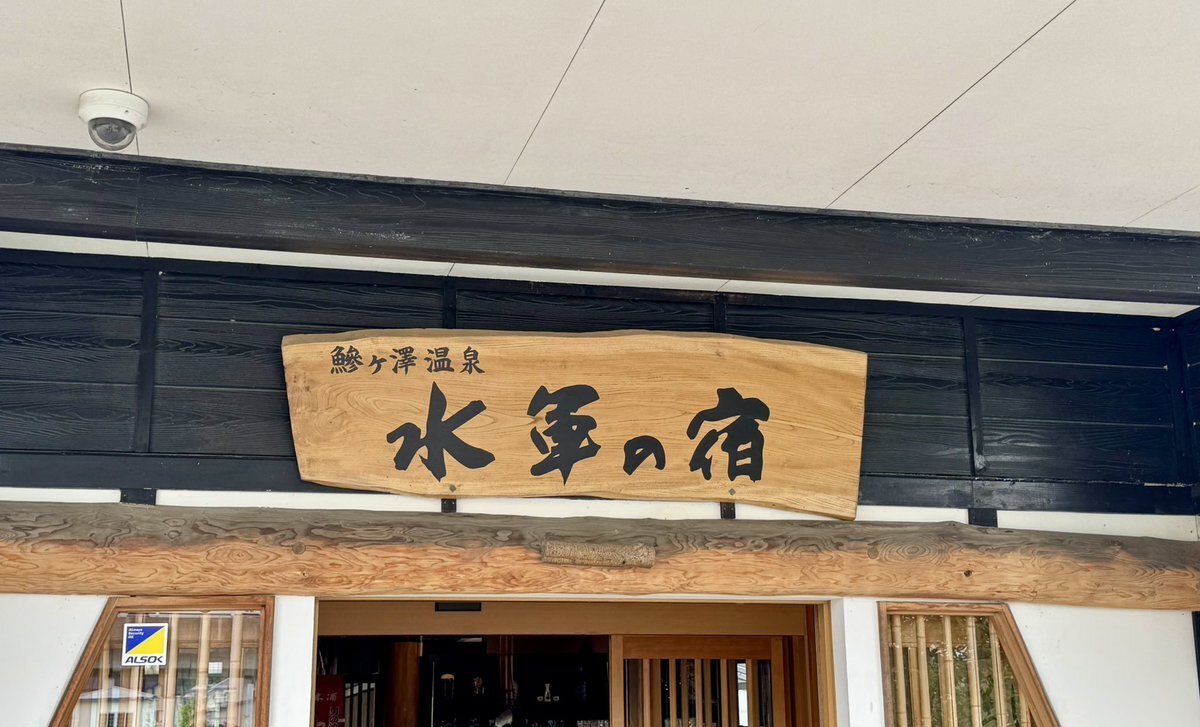 鰺ヶ澤温泉
水軍の宿
Always
Security
OK
ALSOK